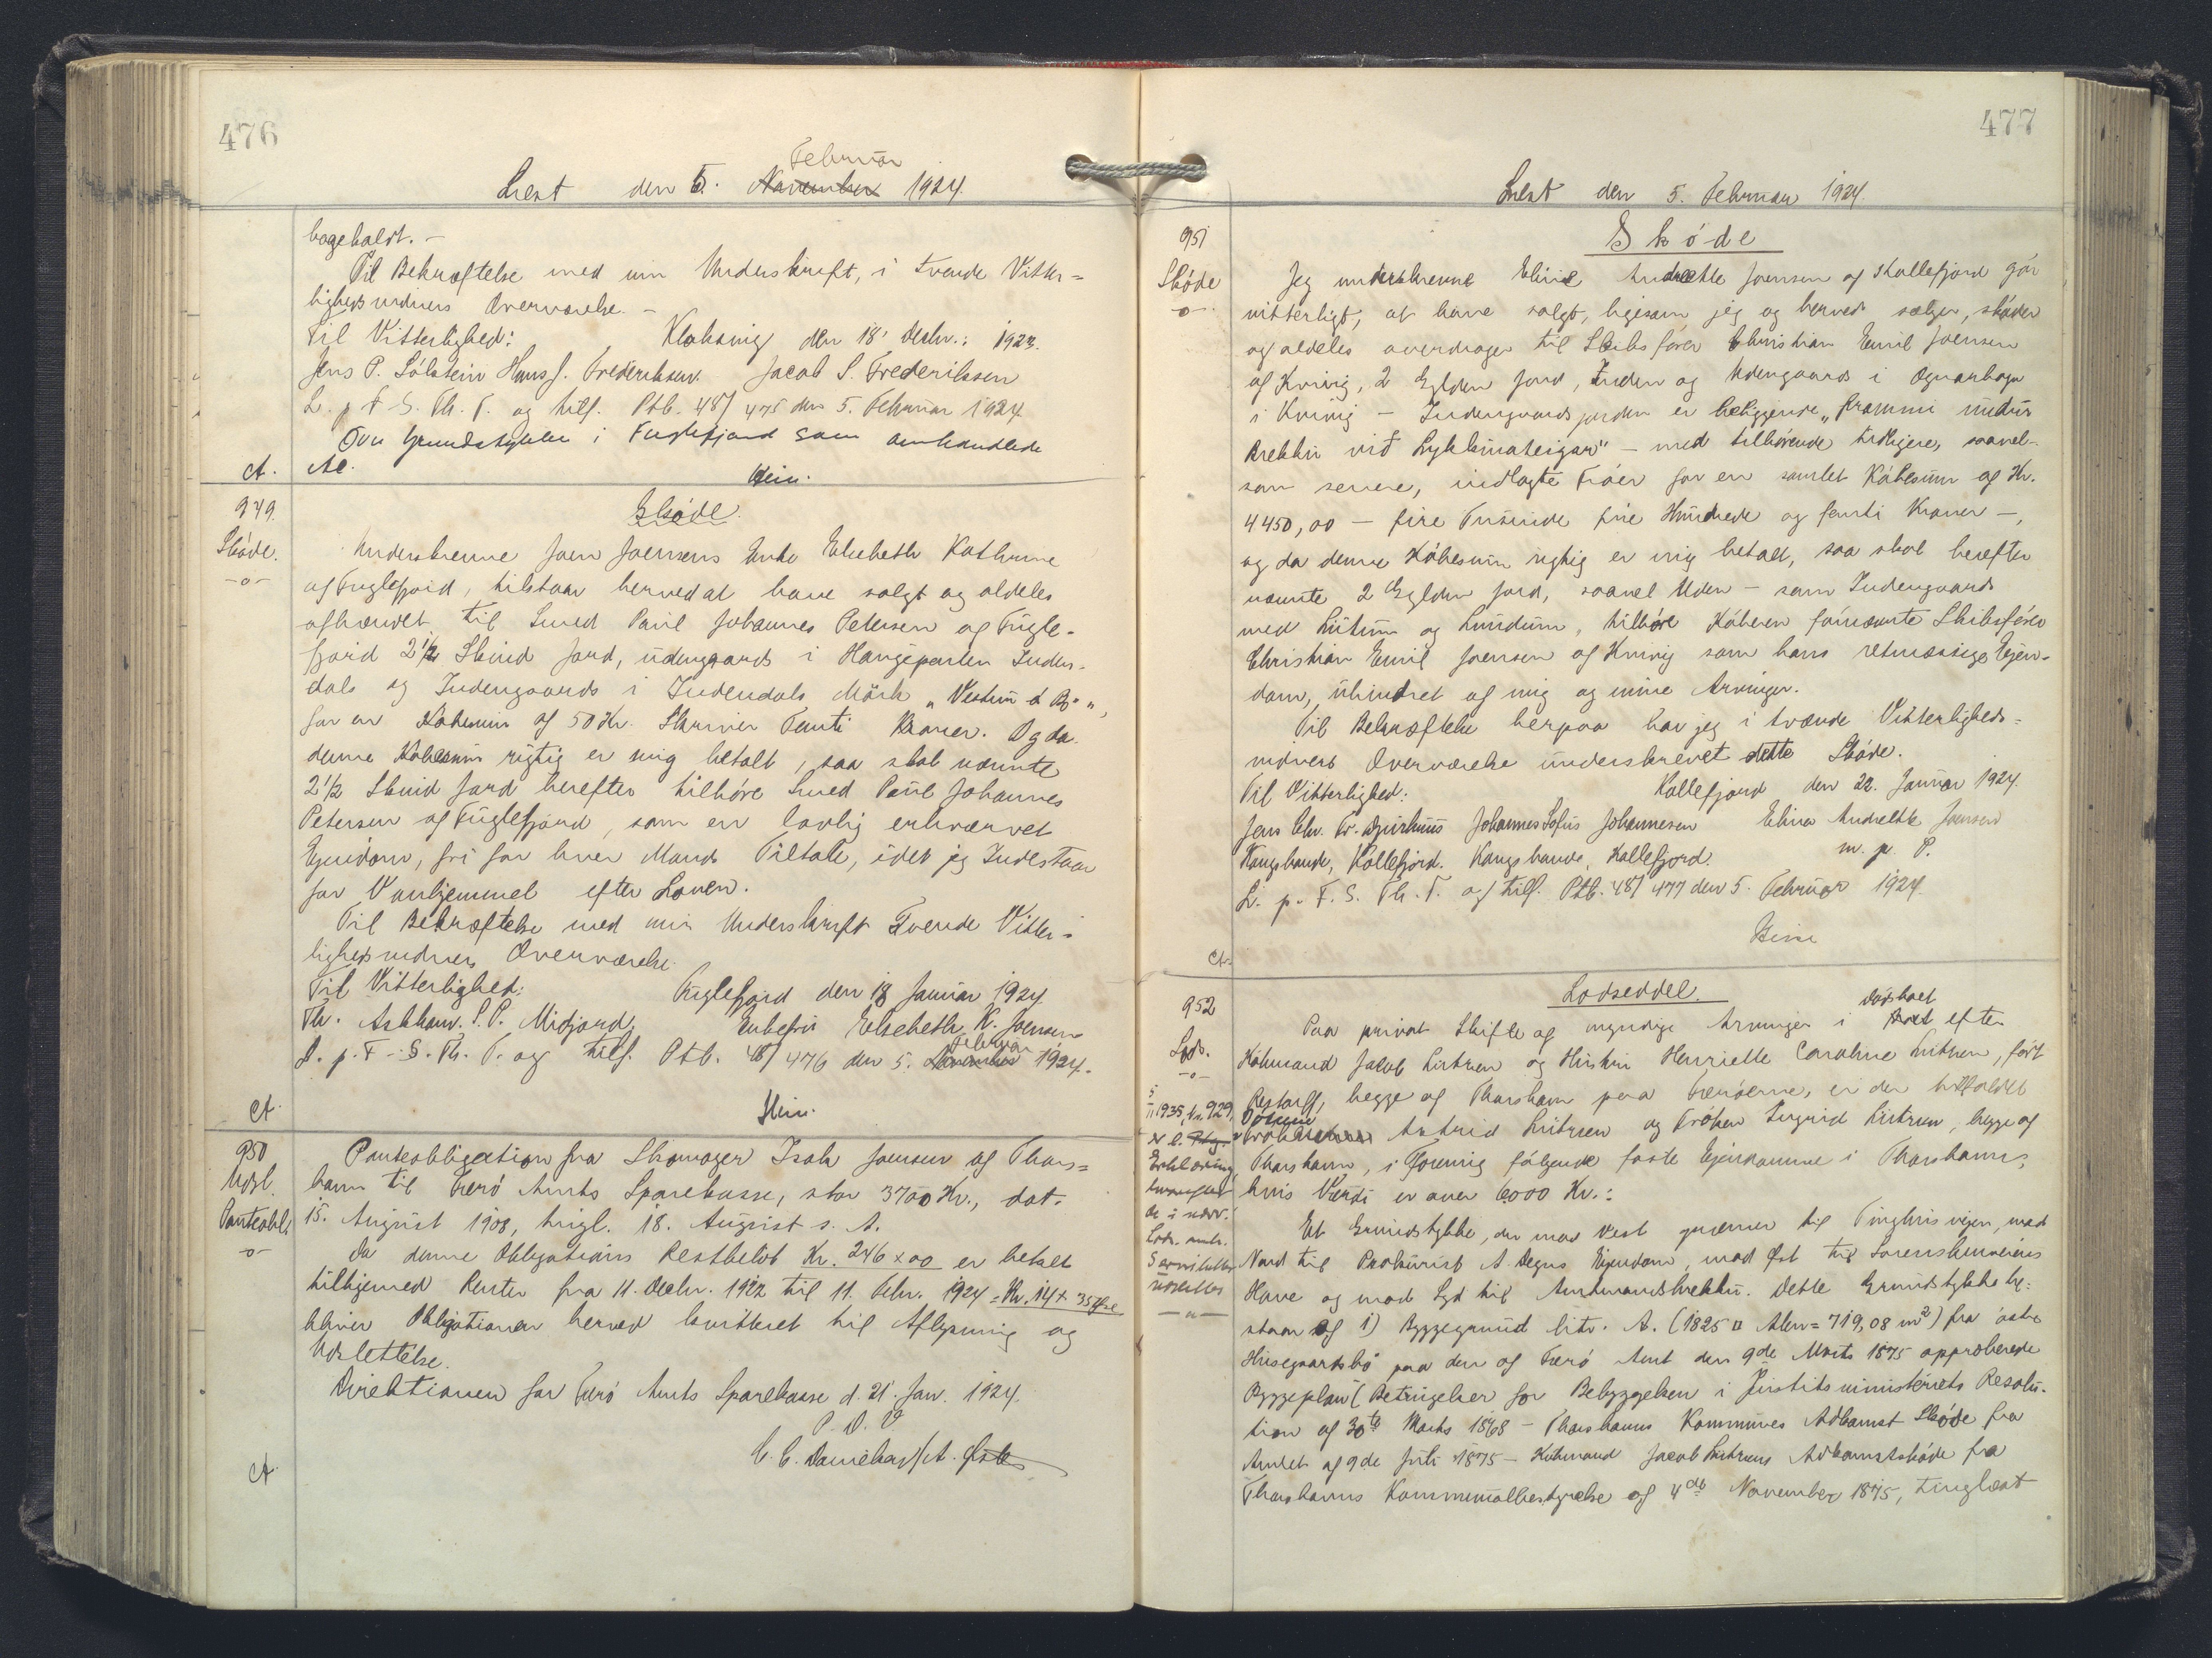 476
Februar
Læst den 5. November 1924.
bageholdt. -
Til Bekræftelse med min Underskrift, i tvende Vitter=
lighedsvidners Overværelse. -
Til Vitterlighed: Klaksvig den 18' Decbr.: 1923.
Jens P. Sólstein Hans J. Frederiksen. Jacob S. Frederiksen
L. p. F. S. Th. T. og tilf. Ptb. 48/475 den 5. Februar 1924
Ovn Grundstykke i Fuglefjord som omhandlede
A. Ae.
949.
Skóde.
-o-
Skóde.
Underskrevne Joen Joensens Enke Elsebeth Kathrine
af Fuglefjord, tilstaar herved at have solgt og aldeles
afhændet til Smed Paul Johannes Petersen af Fugle-
fjord 2 1/2 Skind Jord, udengaards i Hangeparten Inden-
dals og Indengaards i Indendals Mörk "Vestur á Bø",
for en Købesum af 50 Kr. Skriver Femti Kroner. Og da
denne Købesum rigtig er mig betalt, saa skal nævnte
2 1/2 Skind Jord herefter tilhøre Smed Paul Johannes
Petersen af Fuglefjord, som en lovlig erhvervet
Ejendom, fri for hver Mands Tiltale, idet jeg Indestaar
for Vanhjemmel efter Loven.
Til Bekræftelse med min Underskrift Tvende Vitter=
lighedsvidners Overværelse.
Til Vitterlighed: Fuglefjord den 18 Januar 1924
Th. Askham. P. P. Midjord. Enkefru Elsebeth K. Joensen
Februar
L. p. F. S. Th. T. og tilf. Ptb. 48/476 den 5. November 1924.
A.
950
Udsl.
Panteobl.
-o-
Panteobligation fra Skomager Isak Joensen af Thors=
havn til Færö Amts Sparekasse, stor 3700 Kr., dat.
15. August 1908, tingl. 18. August s. A.
Da denne Obligations Restbelöb Kr. 246 x 00 er betalt
tilligemed Renter fra 11. Decbr. 1922 til 11. Febr. 1924 = Kr. 14 x 35 Øre
bliver Obligationen herved kvitteret til Aflysning og
Udslettelse.
Direktionen for Færö Amts Sparekasse d. 21' Jan. 1924.
P. D. V.
C. C. Danielsen / A.
A.
477
Læst den 5. Februar 1924.
951
Skóde
-o-
Skóde
Jeg underskrevne Elina Andrette Joensen af Kollefjord gör
vitterligt, at have solgt, ligesom jeg og herved sælger, skøder
og aldeles overdrager til Skibsfører Christian Emil Joensen
af Kvivig, 2 Gylden Jord, Inden og Udengaards i Ognarhaga
i Kvivig - Indengaardsjorden er beliggende "frammi undir
Brekku við Lykkmateigar" - med tilhørende tidligere, saavel-
som senere, indlagte Tróer for en samlet Kóbesum af Kr.
4450,00 - fire Tusinde fire Hundrede og femti Kroner -,
og da denne Kóbesum rigtig er mig betalt, saa skal herefter
nævnte 2 Gylden Jord, saavel Uden - som Indengaards
med Lutum og Lundum, tilhøre Køberen förnævnte Skibsfører
Christian Emil Joensen af Kvivig som hans retmæssige Ejen-
dom, uhindret af mig og mine Arvinger.
Til Bekræftelse herpaa har jeg i tvende Vitterligheds=
vidners Overværelse underskrevet dette Skøde.
Til Vitterlighed: Kollefjord den 22. Januar 1924.
Jens Chr. Fr. Djurhuus Johannes Sofus Johannesen Elina Andrette Joensen
Kongsbonde, Kollefjord. Kongsbonde, Kollefjord. m. p. P.
L. p. F. S. Th. T. og tilf. Ptb. 48/477 den 5. Februar 1924.
A.
952
Lods.
-o-
Lodseddel.
dödsboet
Paa privat Skifte af myndige Arvinger i Boet efter
Købmand Jacob Lützen og Hustru Henriette Caroline Lützen, født
Restorff, begge af Thorshavn paa Færöerne, er der tilfaldet
Frøken Astrid Lützen og Frøken Ingrid Lützen, begge af
Thorshavn, i Forening følgende faste Ejendomme i Thorshavn,
hvis Værdi er over 6000 Kr.:
Et Grundstykke, der mod Vest grænser til Tinghusvejen, mod
Nord til Prokurist A. Degns Ejendom, mod Øst til Sorenskriverens
Have og mod Syd til Amtmandsbrekku. Dette Grundstykke be-
staar af 1) Byggegrund litr. A. (1825 □ Alen = 719,08 m²) fra östre
Husegaardsbó paa den af Færö Amt den 9de Marts 1875 approberede
Byggeplan (Betingelser for Bebyggelsen i Justitsministeriets Resolu-
tion af 30te Marts 1868 - Thorshavns Kommunes Adkomst Skóde fra
Amtet af 9de Juli 1875 - Købmand Jacob Lützens Adkomstskøde fra
Thorshavns Kommunalbestyrelse af 4de November 1875, tinglæst